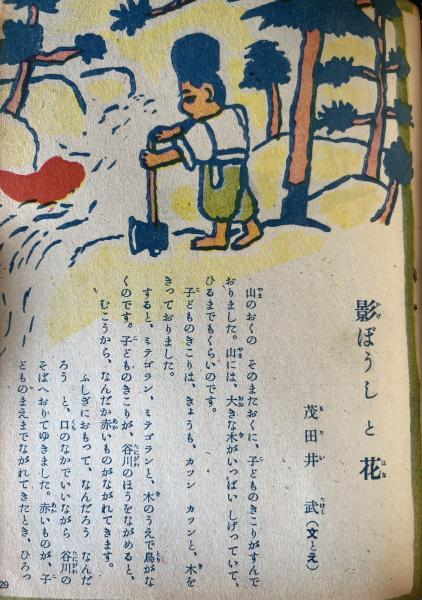 影ぼうしと花
茂田井 武(文とえ)
山のおくの そのまたおくに、子どものきこりがすんで
おりました。山には、大きな木がいっぱい しげっていて、
ひるまでもくらいのです。
子どものきこりは、きょうも、カツン カツンと、木を
きっておりました。
すると、ミテゴラン、ミテゴランと、木のうえで鳥がな
くのです。子どものきこりが、谷川のほうをながめると、
むこうから、なんだか赤いものがながれてきます。
ふしぎにおもって、なんだろう なんだ
ろう と、口のなかでいいながら 谷川の
そばへおりてゆきました。赤いものが、子
どものまえまでながれてきたとき、ひろっ
29